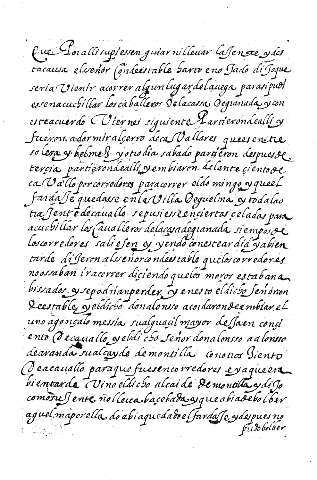 que por alli supiessen guiar ni llevar la gente y a esta
causa el señor Condestable harto enojado dixo que
seria venir a correr algun lugar de la vega para si pudi
essen acuchillar los caballeros de la casa de granada y con
este acuerdo viernes siguiente partieron de alli y
fueron a dormir al çerro de cavallares que es entre
solera y belmez y otro dia sabado partieron despues de
terçia partieron de alli y embiaron delante çiento de
cavallo por corredores para correr el domingo y que el
fardaje quedase en la villa y toda la o
tra gente de cavallo se pusiese en ciertas celadas para
acuchillar los cavalleros de la çiudad de granada siempre
los corredores saliesen y yendo con este ardid ya bien
tarde dixeron al señor condestable que los corredores
no osaban ir a correr diciendo que los moros estaban a
bissados y se podian perder y en esto el dicho señor con
destable y el dicho don alonso acordaron de embiar el
uno a gonçalo messia su alguaçil mayor de jaen con çi
ento de cavallo y el dicho señor don alonso a alonso
de carando su alcayde de montilla con otros çiento
de a cavallo para que fuesen corredores e ya que era
bien tarde vino el dicho alcaide de montilla y dixo
como su gente no lleva cabeçada y que abia de bolber
aquel mapor ella do abia quedado el fardaje y despues no
pudo bolber